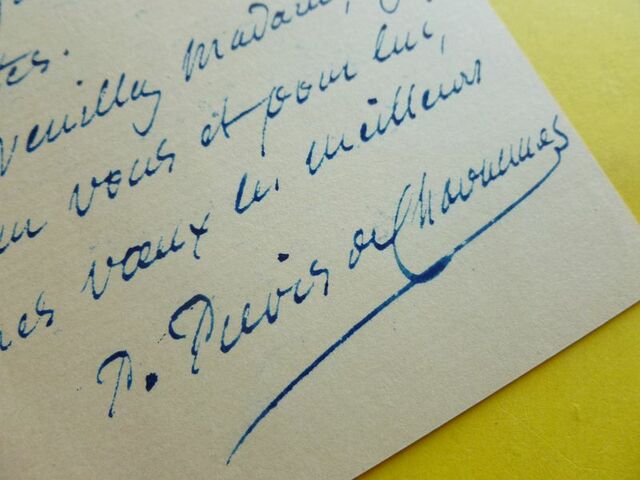 tes.
veuillez Madame,
vous et pour lui,
mes vœux les meilleurs
P. Puvis de Chavannes